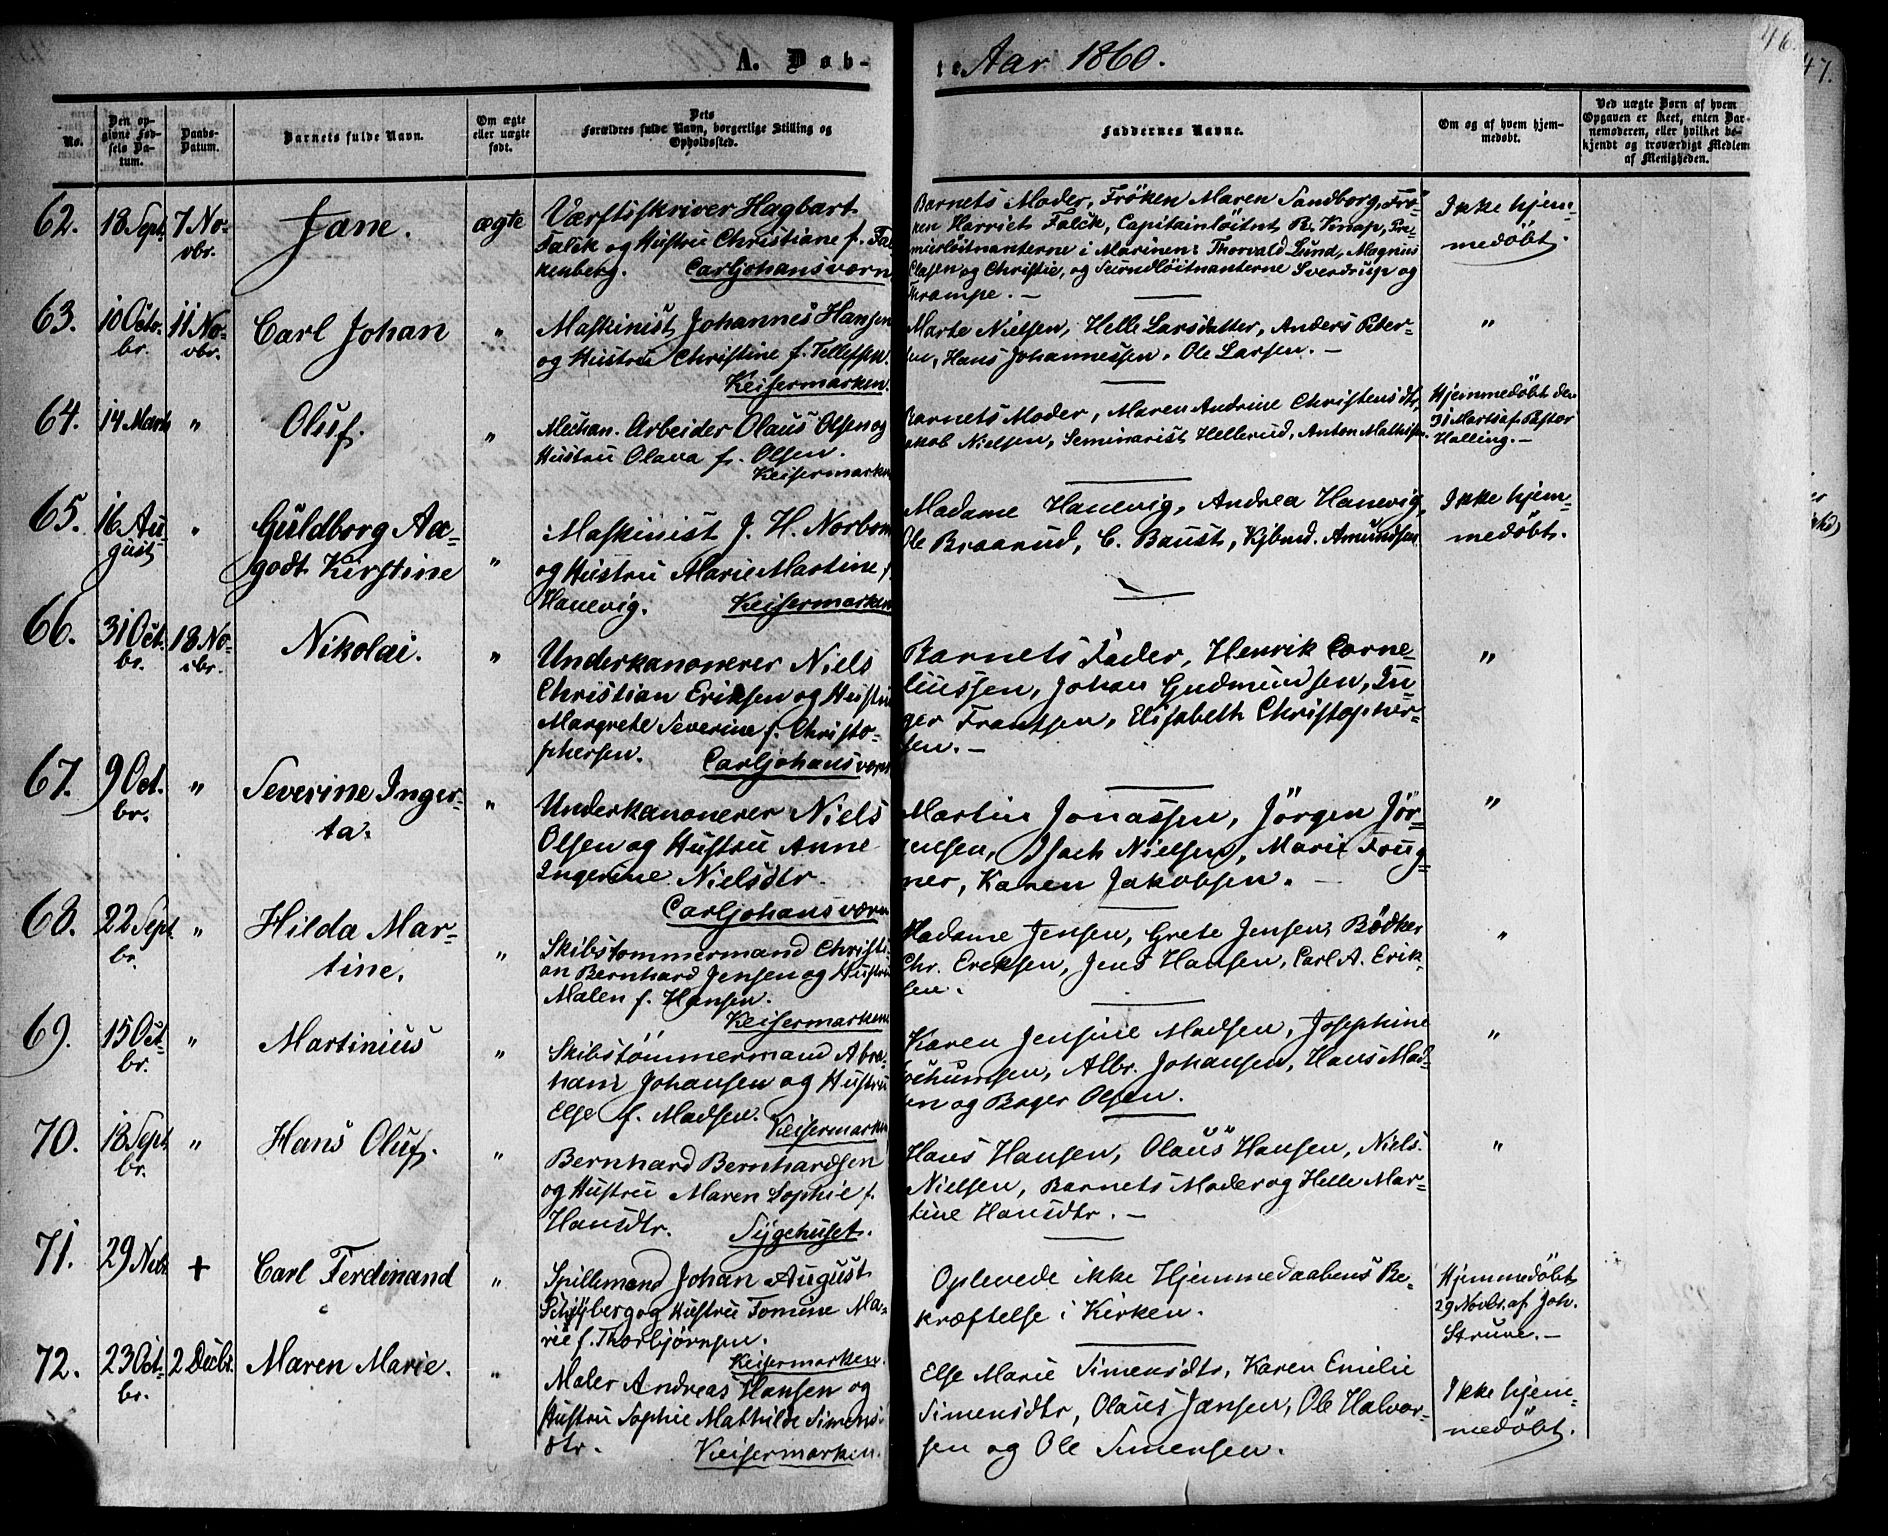 A. Døb-
te Aar 1860.
46.
47.
No.
Den op-
givne Fød-
sels Da-
tum.
Daabs-
Datum.
Barnets fulde Navn.
Om ægte
eller uægte
født.
Dets
Forældres fulde Navn, borgerlige Stilling og
Opholdssted.
Faddernes Navne.
Om og af hvem hjem-
medøbt.
Ved uægte Børn af hvem
Opgaven er skeet, enten Bar-
nemoderen, eller hvilket be-
kjendt og troværdigt Medlem
af Menigheden.
62.
18 Sept.
7 No-
vbr.
Jane.
ægte
Værftsskriver Hagbart
Falck og Hustru Christiane f. Fal-
kenberg. Carljohansværn
Barnets Moder, Fröken Maren Sandborg, Frö-
ken Harriet Falck, Capitainlöitnt R. Knap, Pre-
mierlöitnanterne i Marinen: Thorvald Lund, Magnus
Clasen og Christie, og Secundlöitnanterne Sverdrup og
Thrampe. –
Ikke hjem-
medøbt.
63.
10 Octo-
br.
11 No-
vbr.
Carl Johan
"
Maskinist Johannes Hansen
og Hustru Christine f. Tellefsen.
Keisermarken.
Marte Nielsen, Helle Larsdatter, Anders Peter-
sen, Hans Johannessen, Ole Larsen. –
"
64.
14 Marts
"
Oluf.
"
Mechan. Arbeider Olaus Olsen og
Hustru Olava f. Olsen.
Keisermarken
Barnets Moder, Maren Andrine Christensdtr,
Jakob Nielsen, Seminarist Hellerud, Anton Mathisen.
Hjemmedøbt den
31 Marts af Pastor
Halling. –
65.
16 Au-
gust
"
Guldborg Aa-
godt Kirstine
"
Maskinist J. H. Norbom
og Hustru Marie Martine f.
Hanevig. Keisermarken
Madame Hanevig, Andrea Hanevig,
Ole Braarud, C. Baust, Kjbmd. Amundsen
Ikke hjem-
medøbt.
66.
31 Oct.
br.
18 No-
vbr.
Nikolai.
"
Underkanonerer Niels
Christian Eriksen og Hustru
Margrete Severine f. Christo-
phersen. Carljohansværn
Barnets Fader, Henrik Corne-
liussen, Johan Gudmundsen, In-
ger Frantsen, Elisabeth Christopher-
sen. –
"
67.
9 Oct.
br.
"
Severine Inger-
ta.
"
Underkanonerer Niels
Olsen og Hustru Anne
Ingerine Nielsdtr.
Carljohansværn
Martin Jonassen, Jörgen Jör-
gensen, Isach Nielsen, Marie Frog-
ner, Karen Jakobsen. –
"
68.
22 Sept.
br.
"
Hilda Mar-
tine.
"
Skibstømmermand Christi-
an Bernhard Jensen og Hustru
Malen f. Hansen.
Keisermarken
Madame Jensen, Grete Jensen, Bödker
Chr. Ereksen, Jens Hansen, Carl A. Erik-
sen.
"
69.
15 Oct-
br.
"
Martinius
"
Skibstømmermand Abra-
ham Johansen og Hustru
Else f. Madsen. Keisermarken
Karen Jensine Madsen, Josephine
Jochumsen, Albr. Johansen, Hans Mad-
sen og Boger Olsen.
"
70.
18 Sept.
br.
"
Hans Oluf.
"
Bernhard Bernhardsen
og Hustru Maren Sophie f.
Hansdtr. Sygehuset.
Hans Hansen, Olaus Hansen, Niels
Nielsen, Barnets Moder og Helle Mar-
tine Hansdtr. –
"
71.
29 Nvbr
+
Carl Ferdinand
"
Spillemand Johan August
Schyberg og Hustru Tomine Ma-
rie f. Thorbjørnsen.
Keisermarken.
Oplevede ikke Hjemmedaabens Be-
kræftelse i Kirken.
Hjemmedøbt
29 Novbr. af Joh.
Struve. –
72.
23 Oct-
br.
2 Decbr.
Maren Marie.
"
Maler Andreas Hansen og
Hustru Sophie Mathilde Simens-
dtr. Keisermarken.
Else Marie Simensdtr, Karen Emilie
Simensdtr, Olaus Jansen, Ole Halvor-
sen og Ole Simensen.
Ikke hjem-
medøbt.